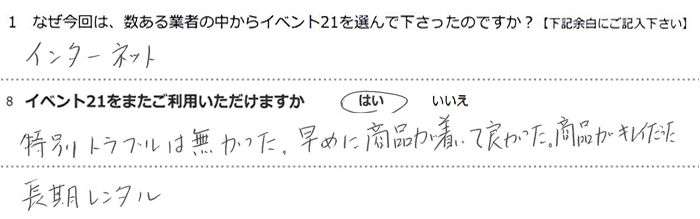 1 なぜ今回は、数ある業者の中からイベント21を選んで下さったのですか？【下記余白にご記入下さい】
インターネット
8 イベント21をまたご利用いただけますか はい いいえ
特別トラブルは無かった。早めに商品が着いて良かった。商品がキレイだった
長期レンタル